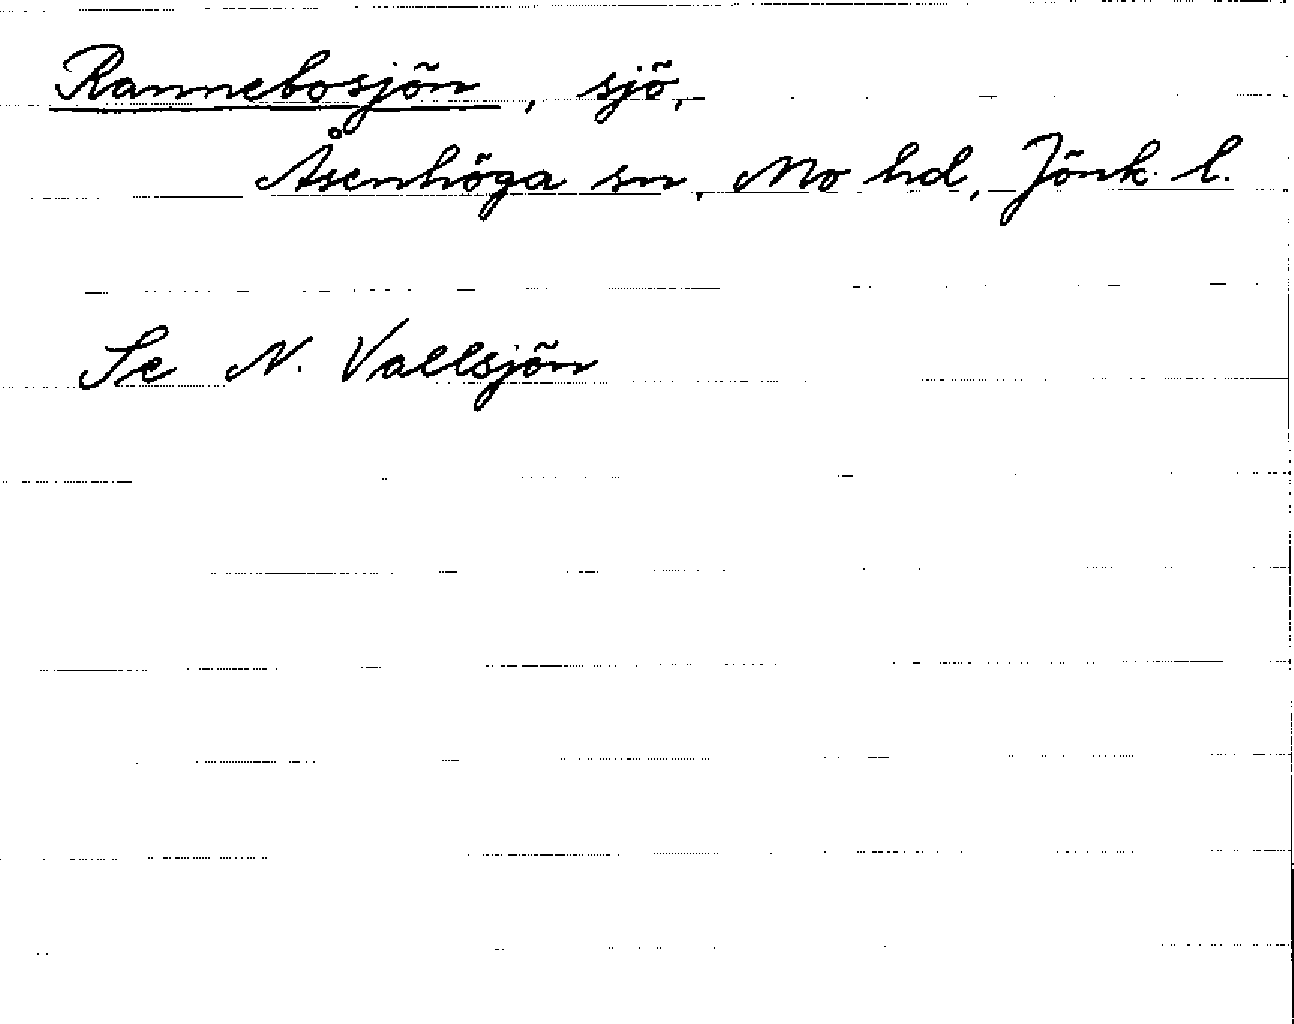 Rannebosjön, sjö,
Åsenhöga sn, Mo hd, Jönk. l.
Se N. Vallsjön